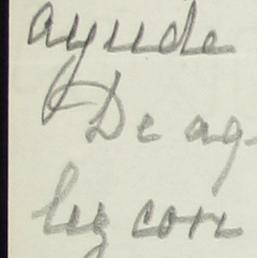 ayude
De ag-
luz con